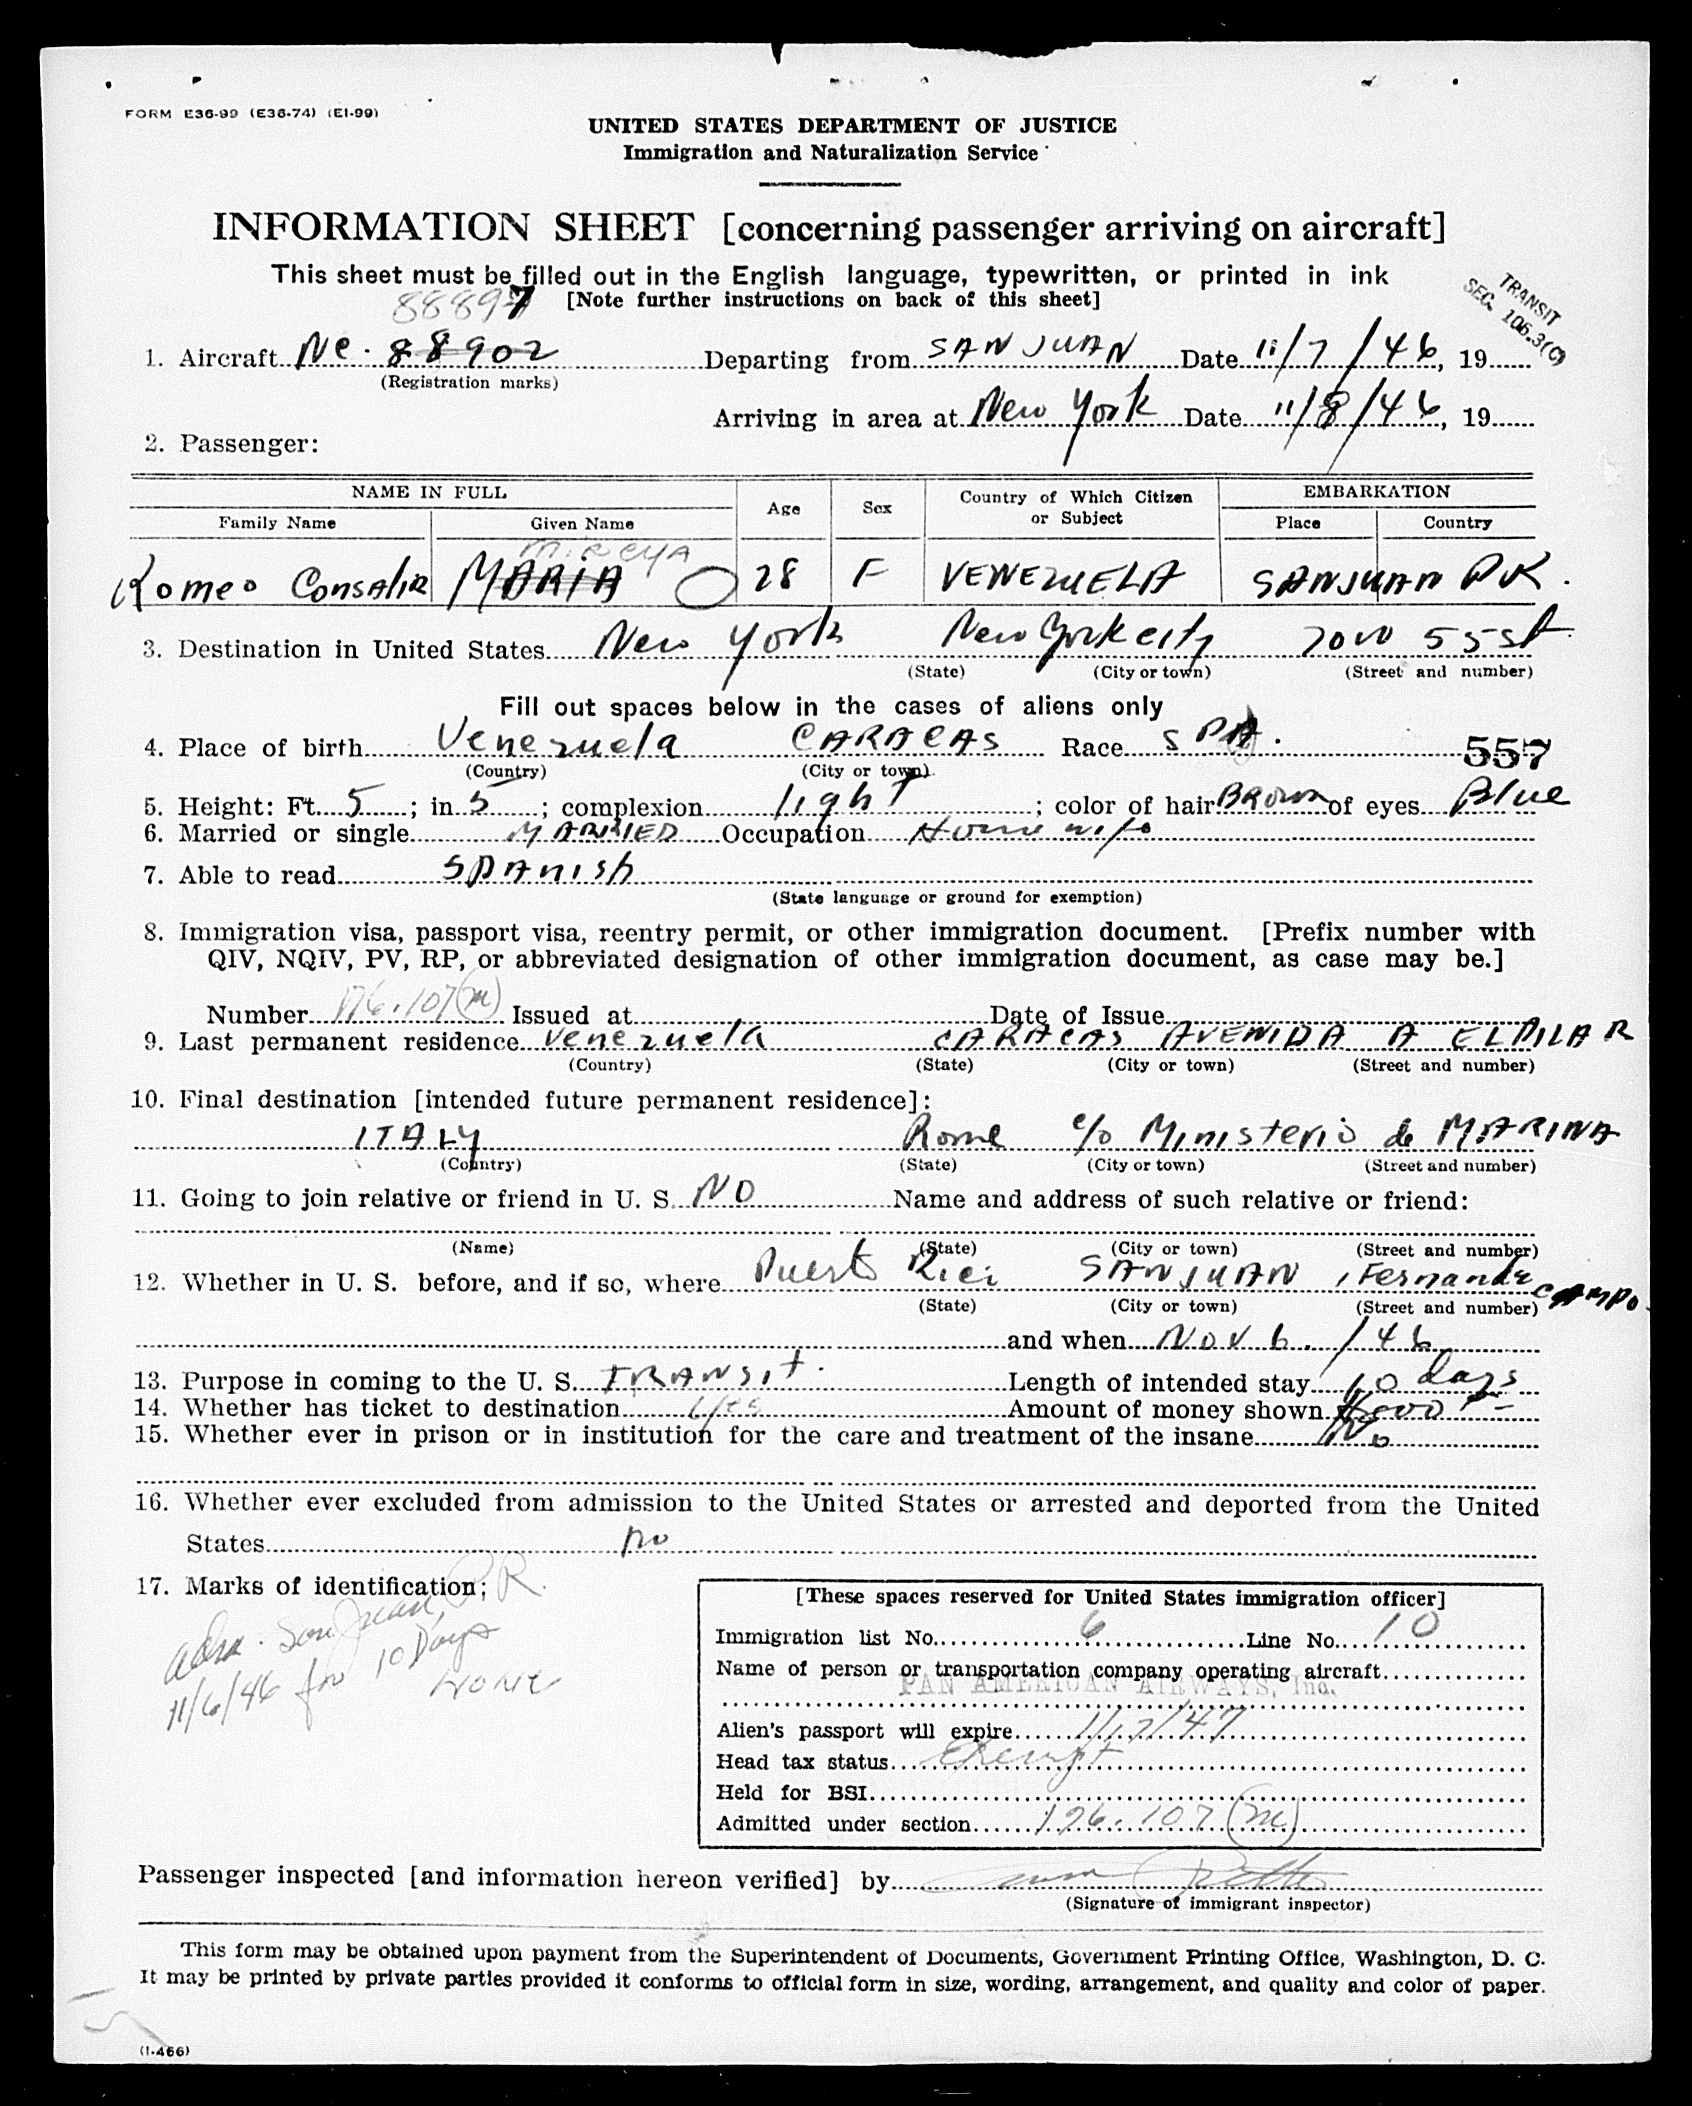 FORM E36-99 (E36-74) (E1-99)
UNITED STATES DEPARTMENT OF JUSTICE
Immigration and Naturalization Service
INFORMATION SHEET [concerning passenger arriving on aircraft]
This sheet must be filled out in the English language, typewritten, or printed in ink
[Note further instructions on back of this sheet]
TRANSIT
SEC. 106.3(C)
88897
1. Aircraft Nc. 88902 Departing from SAN JUAN Date 11/7/46, 19
(Registration marks)
Arriving in area at New York Date 11/8/46, 19
2. Passenger:
NAME IN FULL Age Sex Country of Which Citizen or Subject EMBARKATION
Family Name Given Name Place Country
MIREYA
Romeo MARIA 28 F VENEZUELA SAN JUAN
3. Destination in United States New York New York city 70 W 55 st
(State) (City or town) (Street and number)
Fill out spaces below in the cases of aliens only
4. Place of birth Venezuela CARACAS Race SPA.
557
(Country) (City or town)
5. Height: Ft. 5; in 5; complexion light; color of hair Brown of eyes Blue
6. Married or single MARRIED Occupation House wife
7. Able to read SPANISh
(State language or ground for exemption)
8. Immigration visa, passport visa, reentry permit, or other immigration document. [Prefix number with
QIV, NQIV, PV, RP, or abbreviated designation of other immigration document, as case may be.]
Number 176.107(m) Issued at Date of Issue
9. Last permanent residence Venezuela CARACAS AVENIDA A EL PILAR
(Country) (State) (City or town) (Street and number)
10. Final destination [intended future permanent residece]:
ITALY Rome c/o Ministerio de MARINA
(Country) (State) (City or town) (Street and number)
11. Going to join relative or friend in U. S. NO Name and address of such relative or friend:
(Name) (State) (City or town) (Street and number)
12. Whether in U. S. before, and if so, where Puerto Rico SAN JUAN, Fernandez CAMPO
(State) (City or town) (Street and number)
and when Nov 6. /46
13. Purpose in coming to the U. S. TRANSIT. Length of intended stay 10 days
14. Whether has ticket to destination yes Amount of money shown
15. Whether ever in prison or in institution for the care and treatment of the insane No
16. Whether ever excluded from admission to the United States or arrested and deported from the United
States no
17. Marks of identification:
Adm. San Juan, P.R.
11/6/46 for 10 Days
NONE
[These spaces reserved for United States immigration officer]
Immigration list No. 6 Line No. 10
Name of person or transportation company operating aircraft
PAN AMERICAN AIRWAYS, Inc.
Alien's passport will expire 1/17/47
Head tax status Exempt
Held for BSI
Admitted under section 176.107(m)
Passenger inspected [and information hereon verified] by
(Signature of immigrant inspector)
This form may be obtained upon payment from the Superintendent of Documents, Government Printing Office, Washington, D. C.
It may be printed by private parties provided it conforms to official form in size, wording, arrangement, and quality and color of paper.
(I-466)